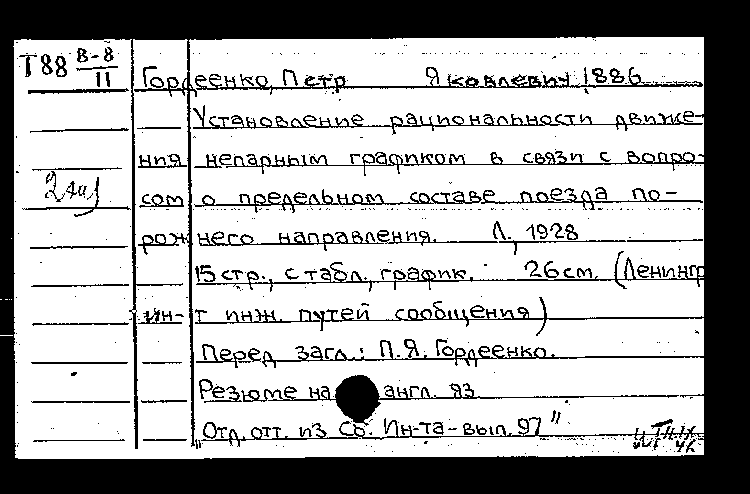 Т88 В-8/II
Гордеенко, Петр Яковлевич 1886
Установление рациональности движе-
ния непарным графиком в связи с вопро-
сом о предельном составе поезда по-
рожнего направления. Л., 1928
15 стр., с табл., график. 26 см. (Ленингр
ин-т инж. путей сообщения)
Перед загл.: П.Я. Гордеенко.
Резюме на англ. яз
"Отд. отт. из Сб. Ин-та - вып. 97"